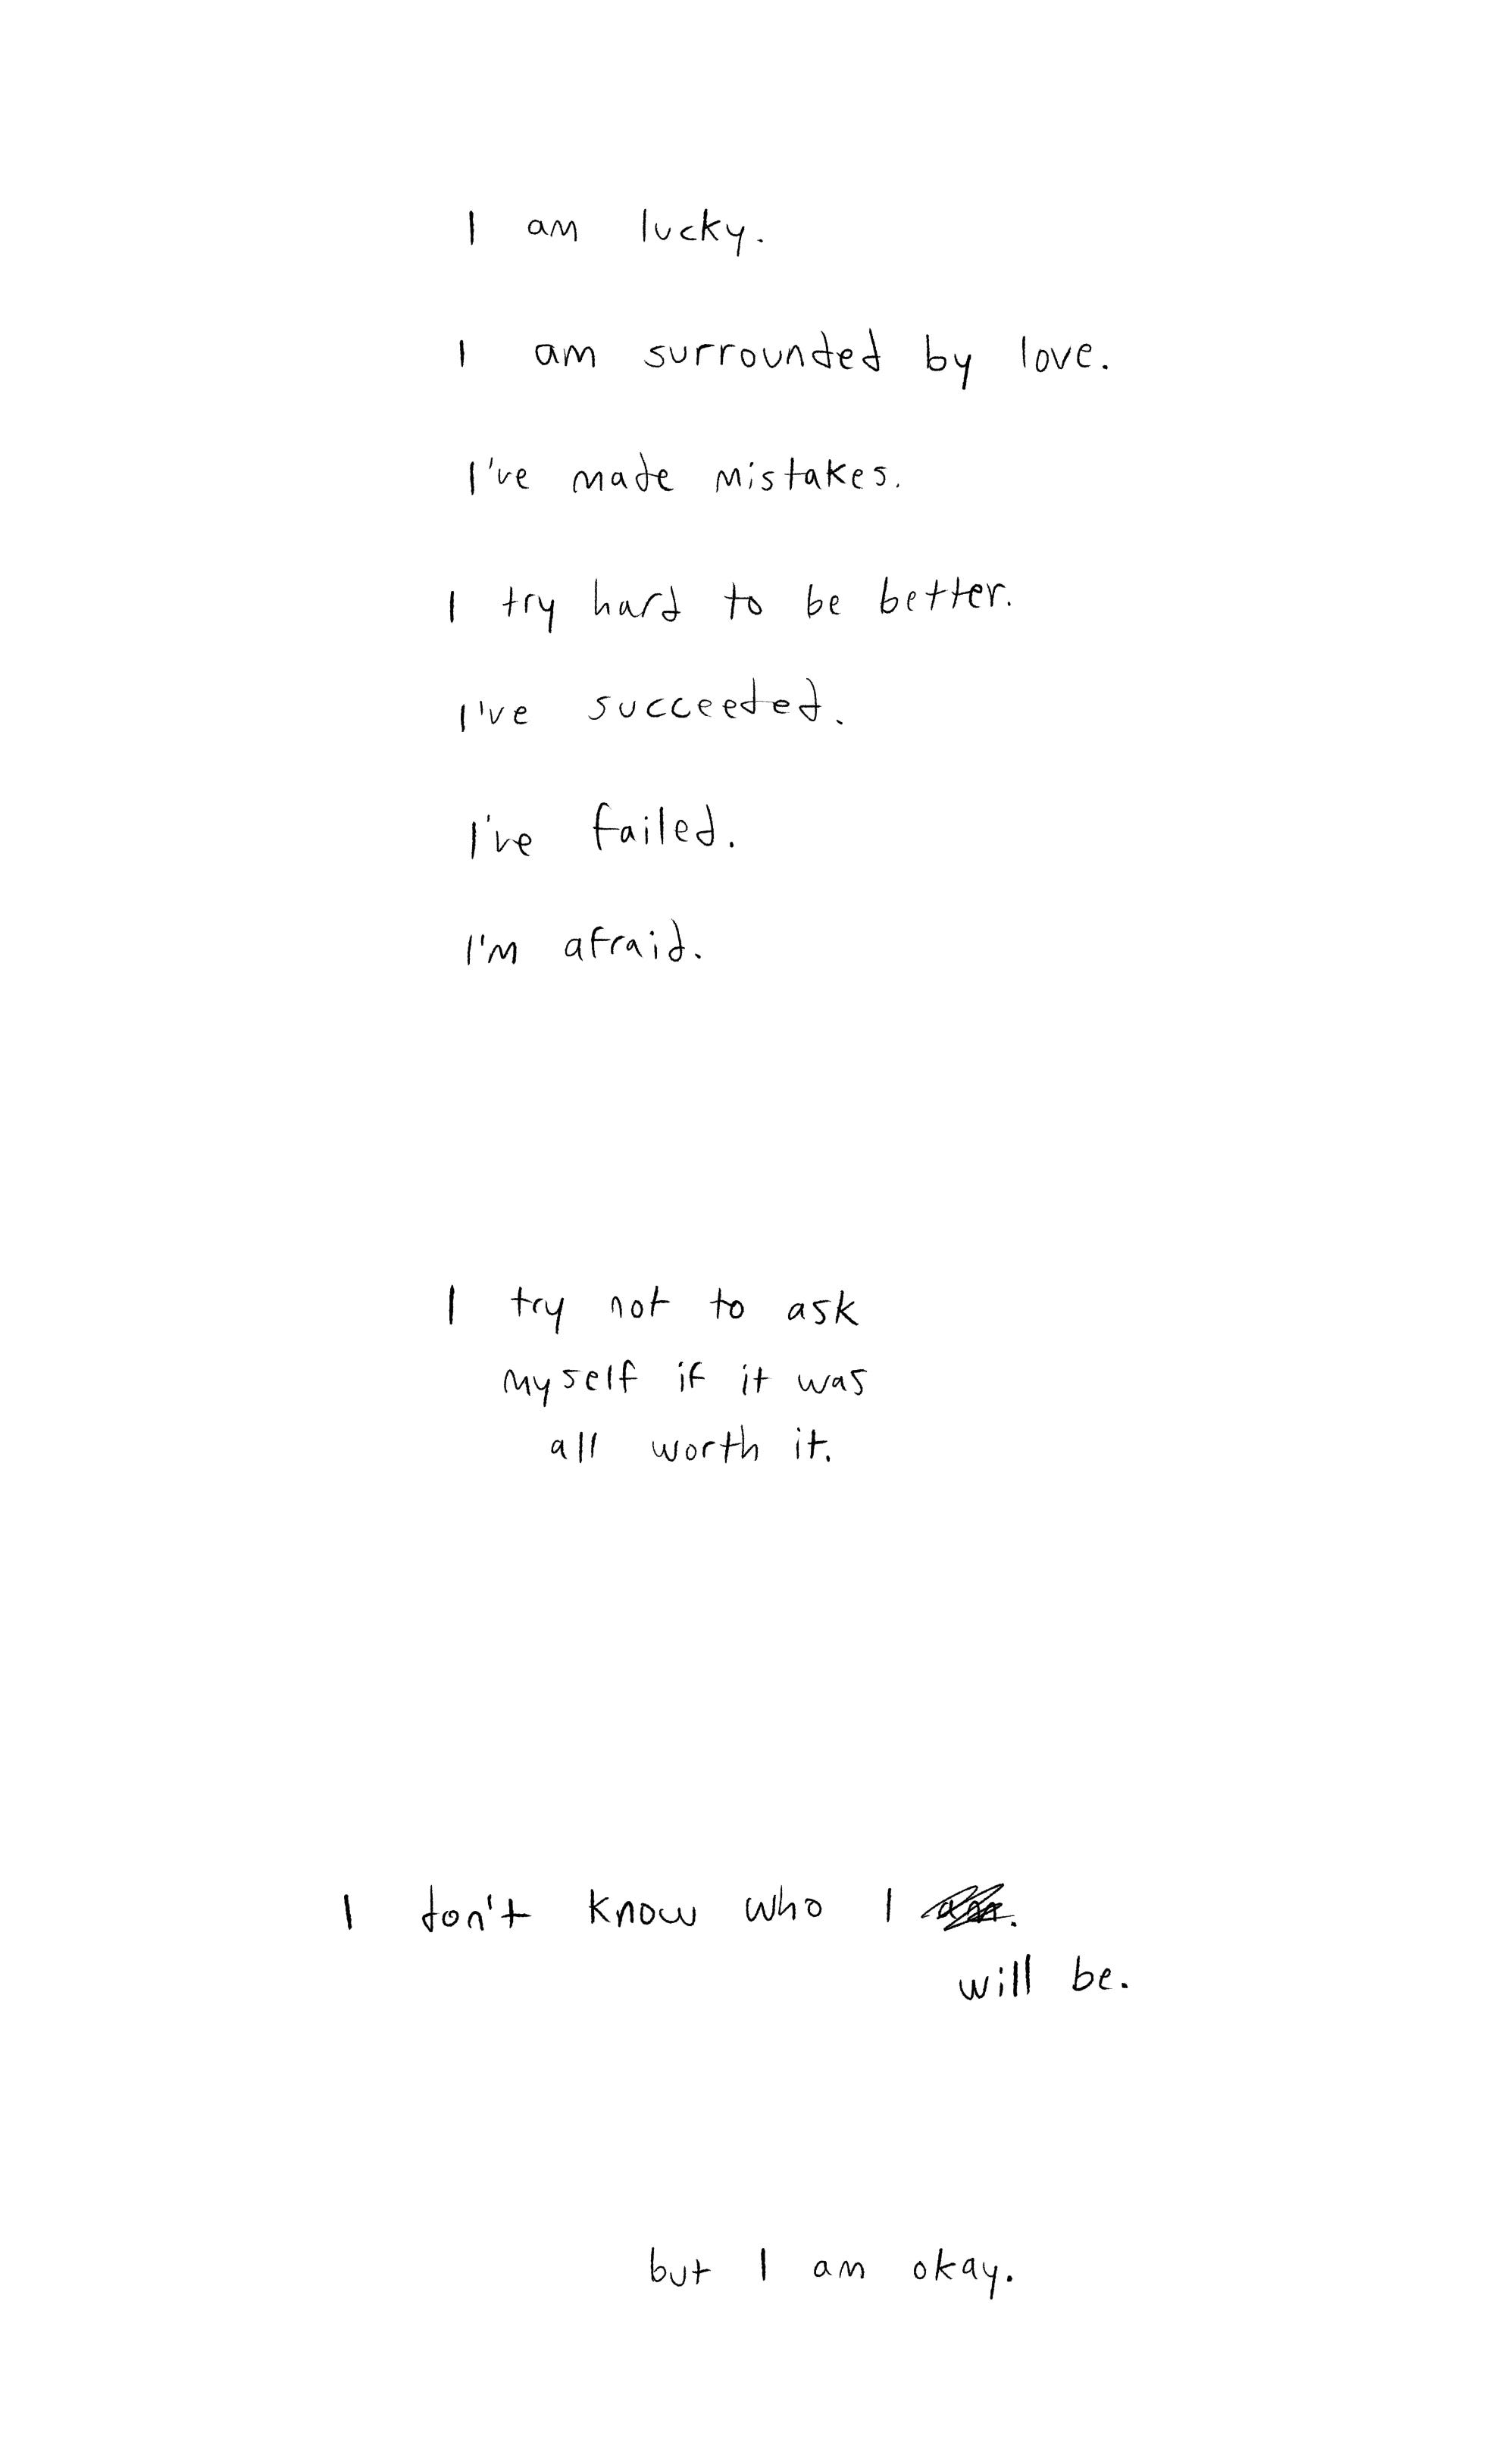 I am lucky.
I am surrounded by love.
I've made mistakes.
I try hard to be better.
I've succeeded.
I've failed.
I'm afraid.
I try not to ask
myself if it was
all worth it.
I don't know who I am.
will be.
but I am okay.